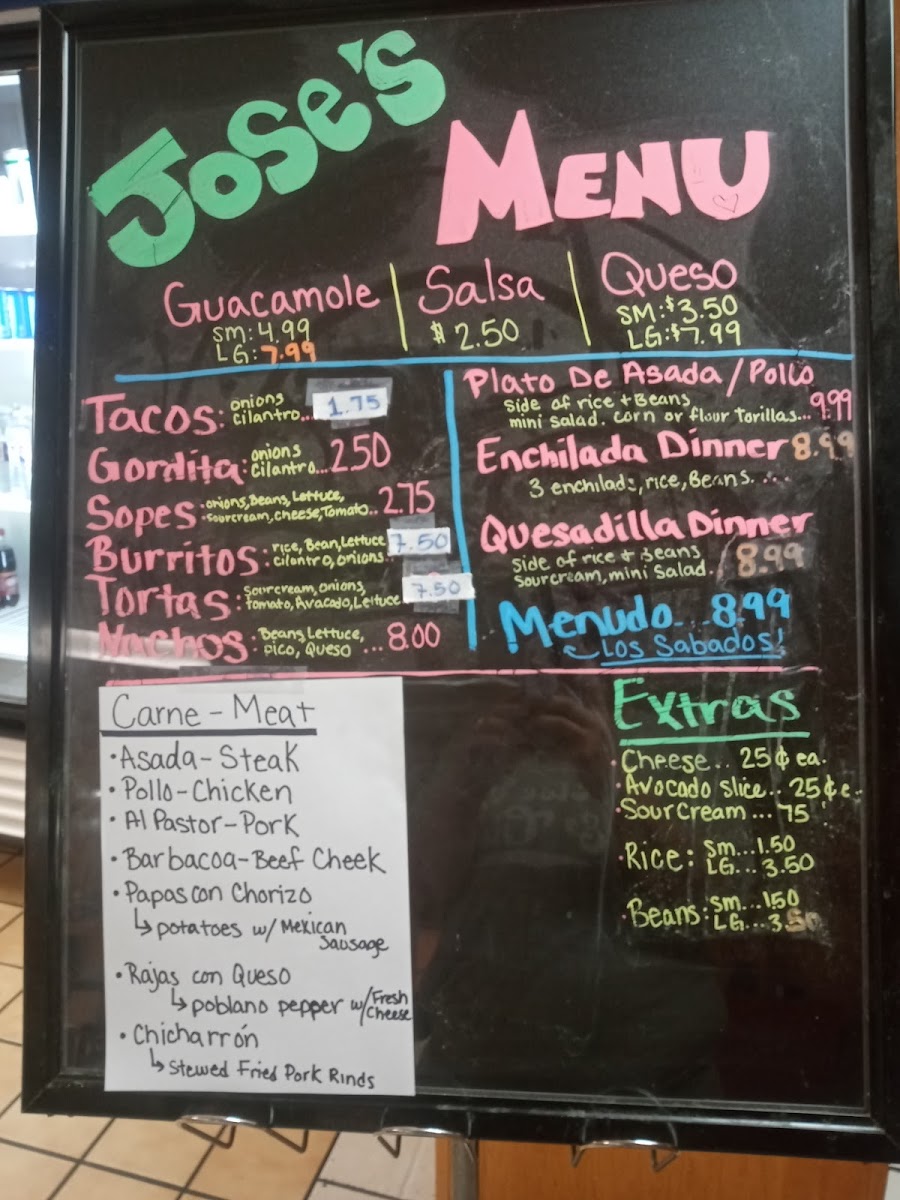 Jose's
Menu
Guacamole
SM: 4.99
LG: 7.99
Salsa
$2.50
Queso
SM: $3.50
LG: $7.99
Tacos: onions
cilantro... 1.75
Gordita: onions
cilantro... 2.50
Sopes - onions, Beans, Lettuce,
sourcream, cheese, Tomato.. 2.75
Burritos: rice, Bean, Lettuce
cilantro, onions.. 7.50
Tortas: sourcream, onions,
tomato, Avacado, Lettuce 7.50
Nachos: Beans, Lettuce,
pico, Queso ... 8.00
Plato De Asada / Pollo
side of rice + Beans
mini salad. corn or flour Torillas... 9.99
Enchilada Dinner 8.99
3 enchilads, rice, Beans....
Quesadilla Dinner
side of rice + Beans
sourcream, mini salad.. 8.99
Menudo... 8.99
Los Sabados!
Carne - Meat
• Asada - Steak
• Pollo - Chicken
• Al Pastor - Pork
• Barbacoa - Beef Cheek
• Papas con Chorizo
↳ potatoes w/ Mexican
Sausage
• Rajas con Queso
↳ poblano pepper w/ Fresh
Cheese
• Chicharrón
↳ Stewed Fried Pork Rinds
Extras
• Cheese... 25¢ ea.
• Avocado slice.. 25¢ e
• Sour Cream ... 75
• Rice: Sm... 1.50
LG... 3.50
• Beans: sm... 1.50
LG... 3.50